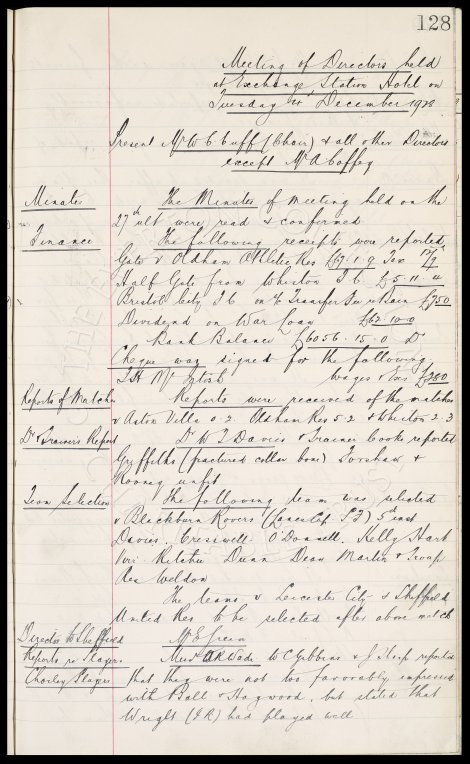 128
Meeting of Directors held
at Exchange Station Hotel on
Tuesday 4th December 1928
Present Mr W C Cuff (Chair) & all other Directors
except Mr A Coffey
Minutes The Minutes of meeting held on the
27th ult were read & confirmed
Finance The following receipts were reported
Gate v Oldham Athletic Res £67.1.9 Tax
Half Gate from F C £5.11.4
Bristol City F C on a/c Transfer fee £750
Dividend on War Loan £62.10.0
Bank Balance £6056.15.0 Dr
Cheque was signed for the following
T H McIntosh Wages & Exes £380
Reports of Matches Reports were received of the matches
v Aston Villa 0-2. Oldham Res 5-2 & 2-3
Dr & Trainers Report Dr W T Davies & Trainer Cooke reported
Griffiths (fractured collar bone) &
Rooney unfit
Team Selection The following team was selected
v Blackburn Rovers (Lancs Cup S F) 5th inst
Davies. Cresswell O'Donnell. Kelly Hart
Virr Ritchie Dunn Dean Martin & Troup
Res Weldon
The teams v Leicester City & Sheffield
United Res to be selected after above match
Director to Sheffield Mr E Green
Reports re Players Messrs A R Wade W C Gibbins & J Sharp reported
Chorley Players that they were not too favorably impressed
with Ball & Haywood, but stated that
Wright (I R) had played well